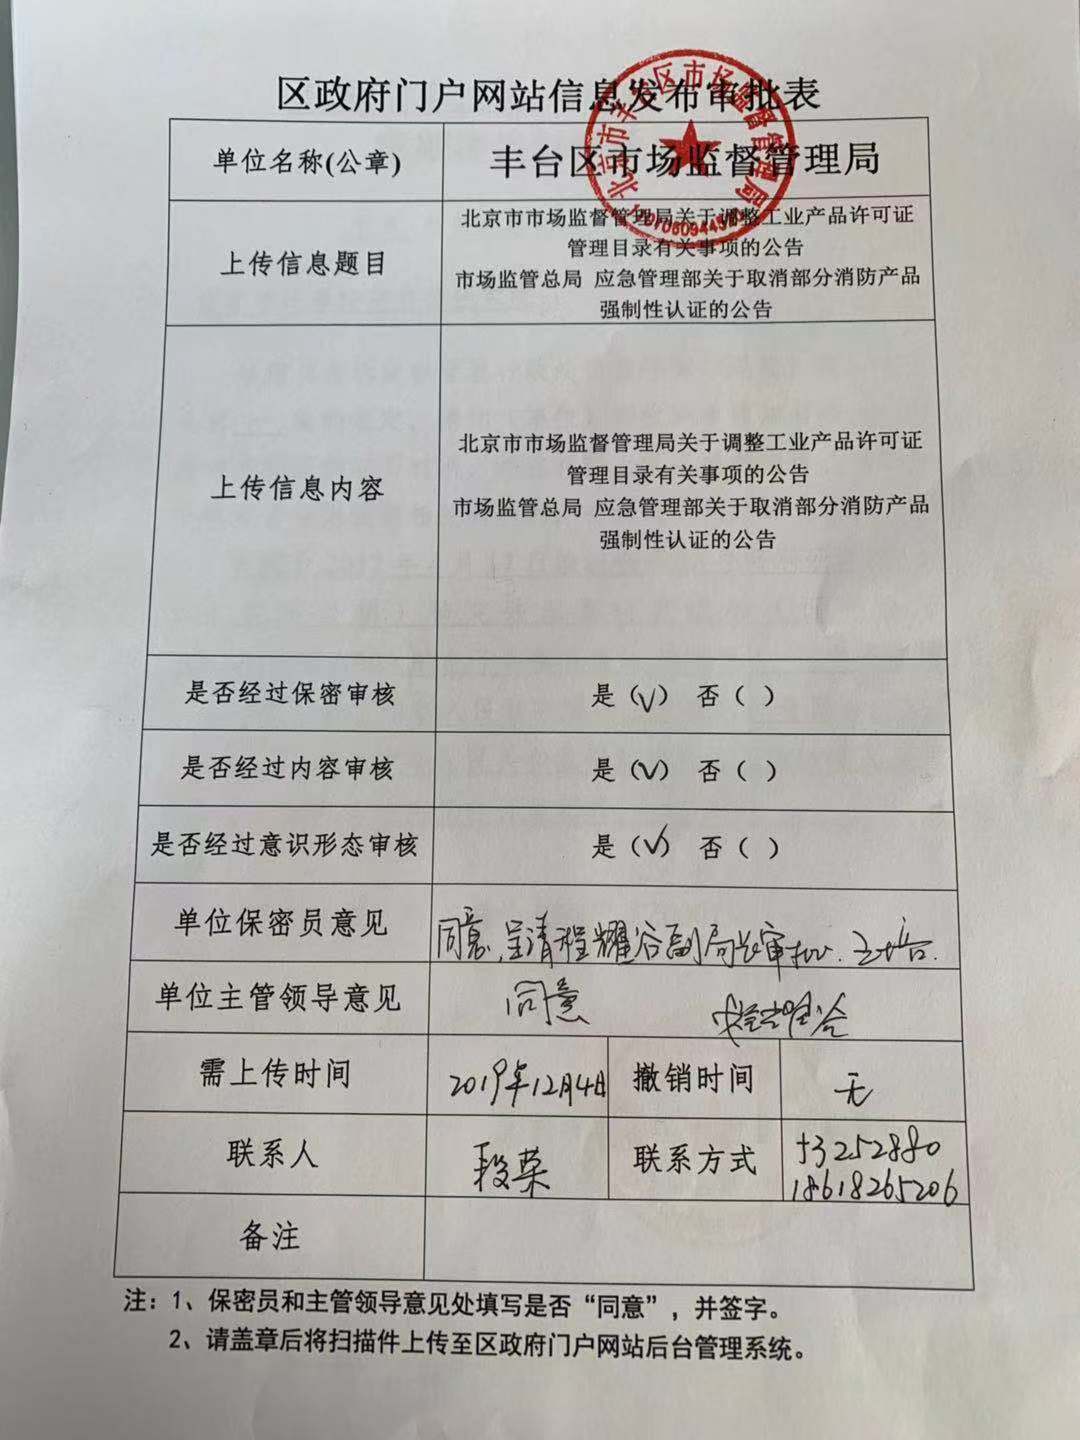 区政府门户网站信息发布审批表
北京市丰台区市场监督管理局
单位名称(公章) 丰台区市场监督管理局
上传信息题目
北京市市场监督管理局关于调整工业产品许可证
管理目录有关事项的公告
市场监管总局 应急管理部关于取消部分消防产品
强制性认证的公告
上传信息内容
北京市市场监督管理局关于调整工业产品许可证
管理目录有关事项的公告
市场监管总局 应急管理部关于取消部分消防产品
强制性认证的公告
是否经过保密审核 是(√) 否( )
是否经过内容审核 是(√) 否( )
是否经过意识形态审核 是(√) 否( )
单位保密员意见 同意,呈请程耀谷副局长审批.
单位主管领导意见 同意
需上传时间 2019年12月4日 撤销时间 无
联系人 段荣 联系方式 3252880
18618265206
备注
注：1、保密员和主管领导意见处填写是否“同意”，并签字。
2、请盖章后将扫描件上传至区政府门户网站后台管理系统。